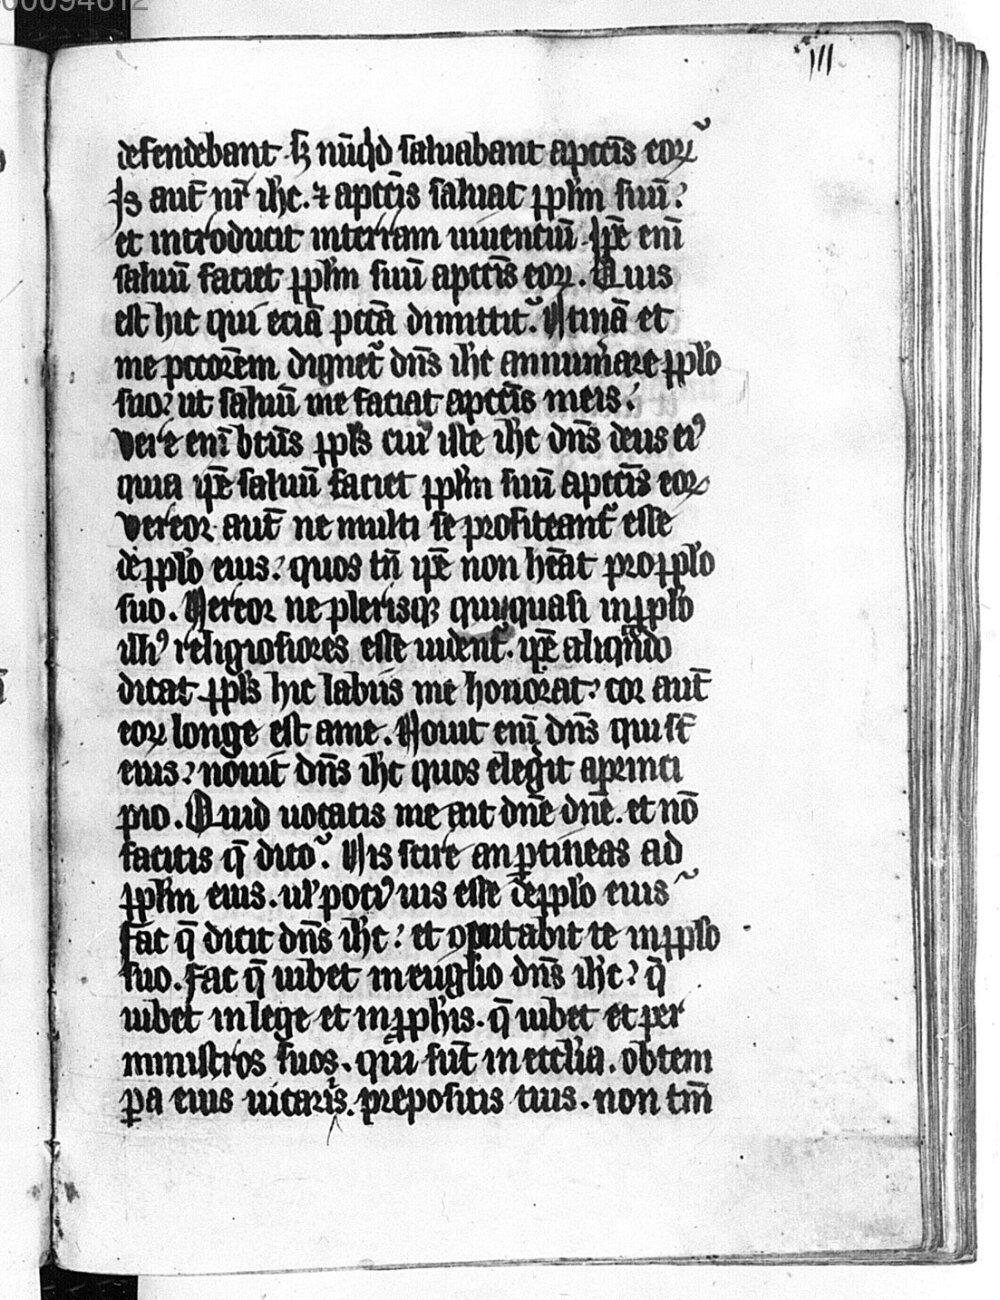 00094612
III
defendebant· sꝫ nūq̇d saluabant a pctīs eoꝝ᷈
Is aut̄ nr̄ ih̄c. ⁊ a pctīs saluat pp̄lm suū:
et introducit in terram uiuentiū· ip̄e enī
saluū faciet pp̄lm suū a pctīs eoꝝ. Quis
est hic qui eciā pctā dimittit᷈. Utinā et
me pctorēm dignet᷈ dn̄s ih̄c annumerare pp̄lo
suo: ut saluū me faciat a pctīs meis.
Vere enī btūs pp̄ls cui᷒ iste ih̄c dn̄s deus ei᷒
quia ip̄e saluū faciet pp̄lm suū a pctīs eoꝝ
vereor aut̄ ne multi se profiteant᷈ esse
de pp̄lo eius: quos tn̄ ip̄e non hēat pro pp̄lo
suo. Vereor ne plerisqꝫ qui quasi in pp̄lo
illi᷒ religiosiores esse uident᷈. ip̄e aliqn̄do
dicat pp̄ls hic labiis me honorat: cor aut̄
eoꝝ longe est a me. Nouit enī dn̄s qui st̄
eius: nouit dn̄s ih̄c quos elegit a princi
pio. Quid uocatis me ait dn̄e dn̄e. et nō
facitis q̄ dico᷈. Uis scire an ꝑtineas ad
pp̄lm eius. ul' poci᷒ uis esse de pp̄lo eius᷈
fac q̄ dicit dn̄s ih̄c: et ↄputabit te in pp̄lo
suo. fac q̄ iubet in euglio dn̄s ih̄c: q̄
iubet in lege et in ꝓphīs. q̄ iubet et per
ministros suos. qui sūt in ecclīa. obtem
ꝑa eius uicariis. prepositis tuis. non tm̄